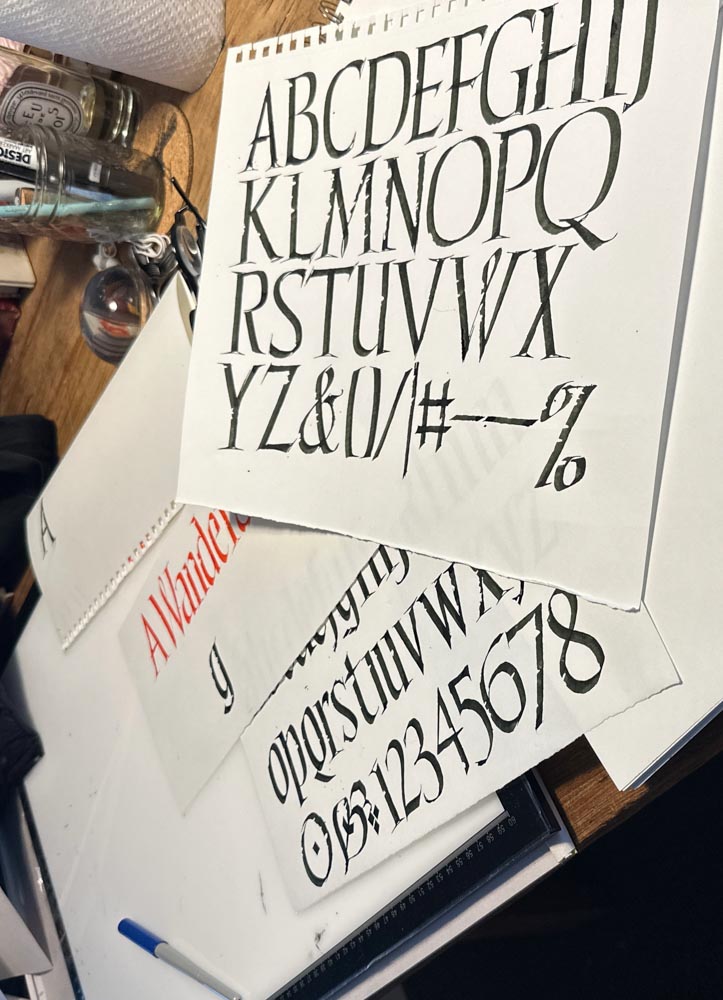 ABCDEFGHIJ
KLMNOPQ
RSTUVWXX
YZ&()/|#—%
A
A Wandere
g
opqrstuvwx
12345678
DESIG